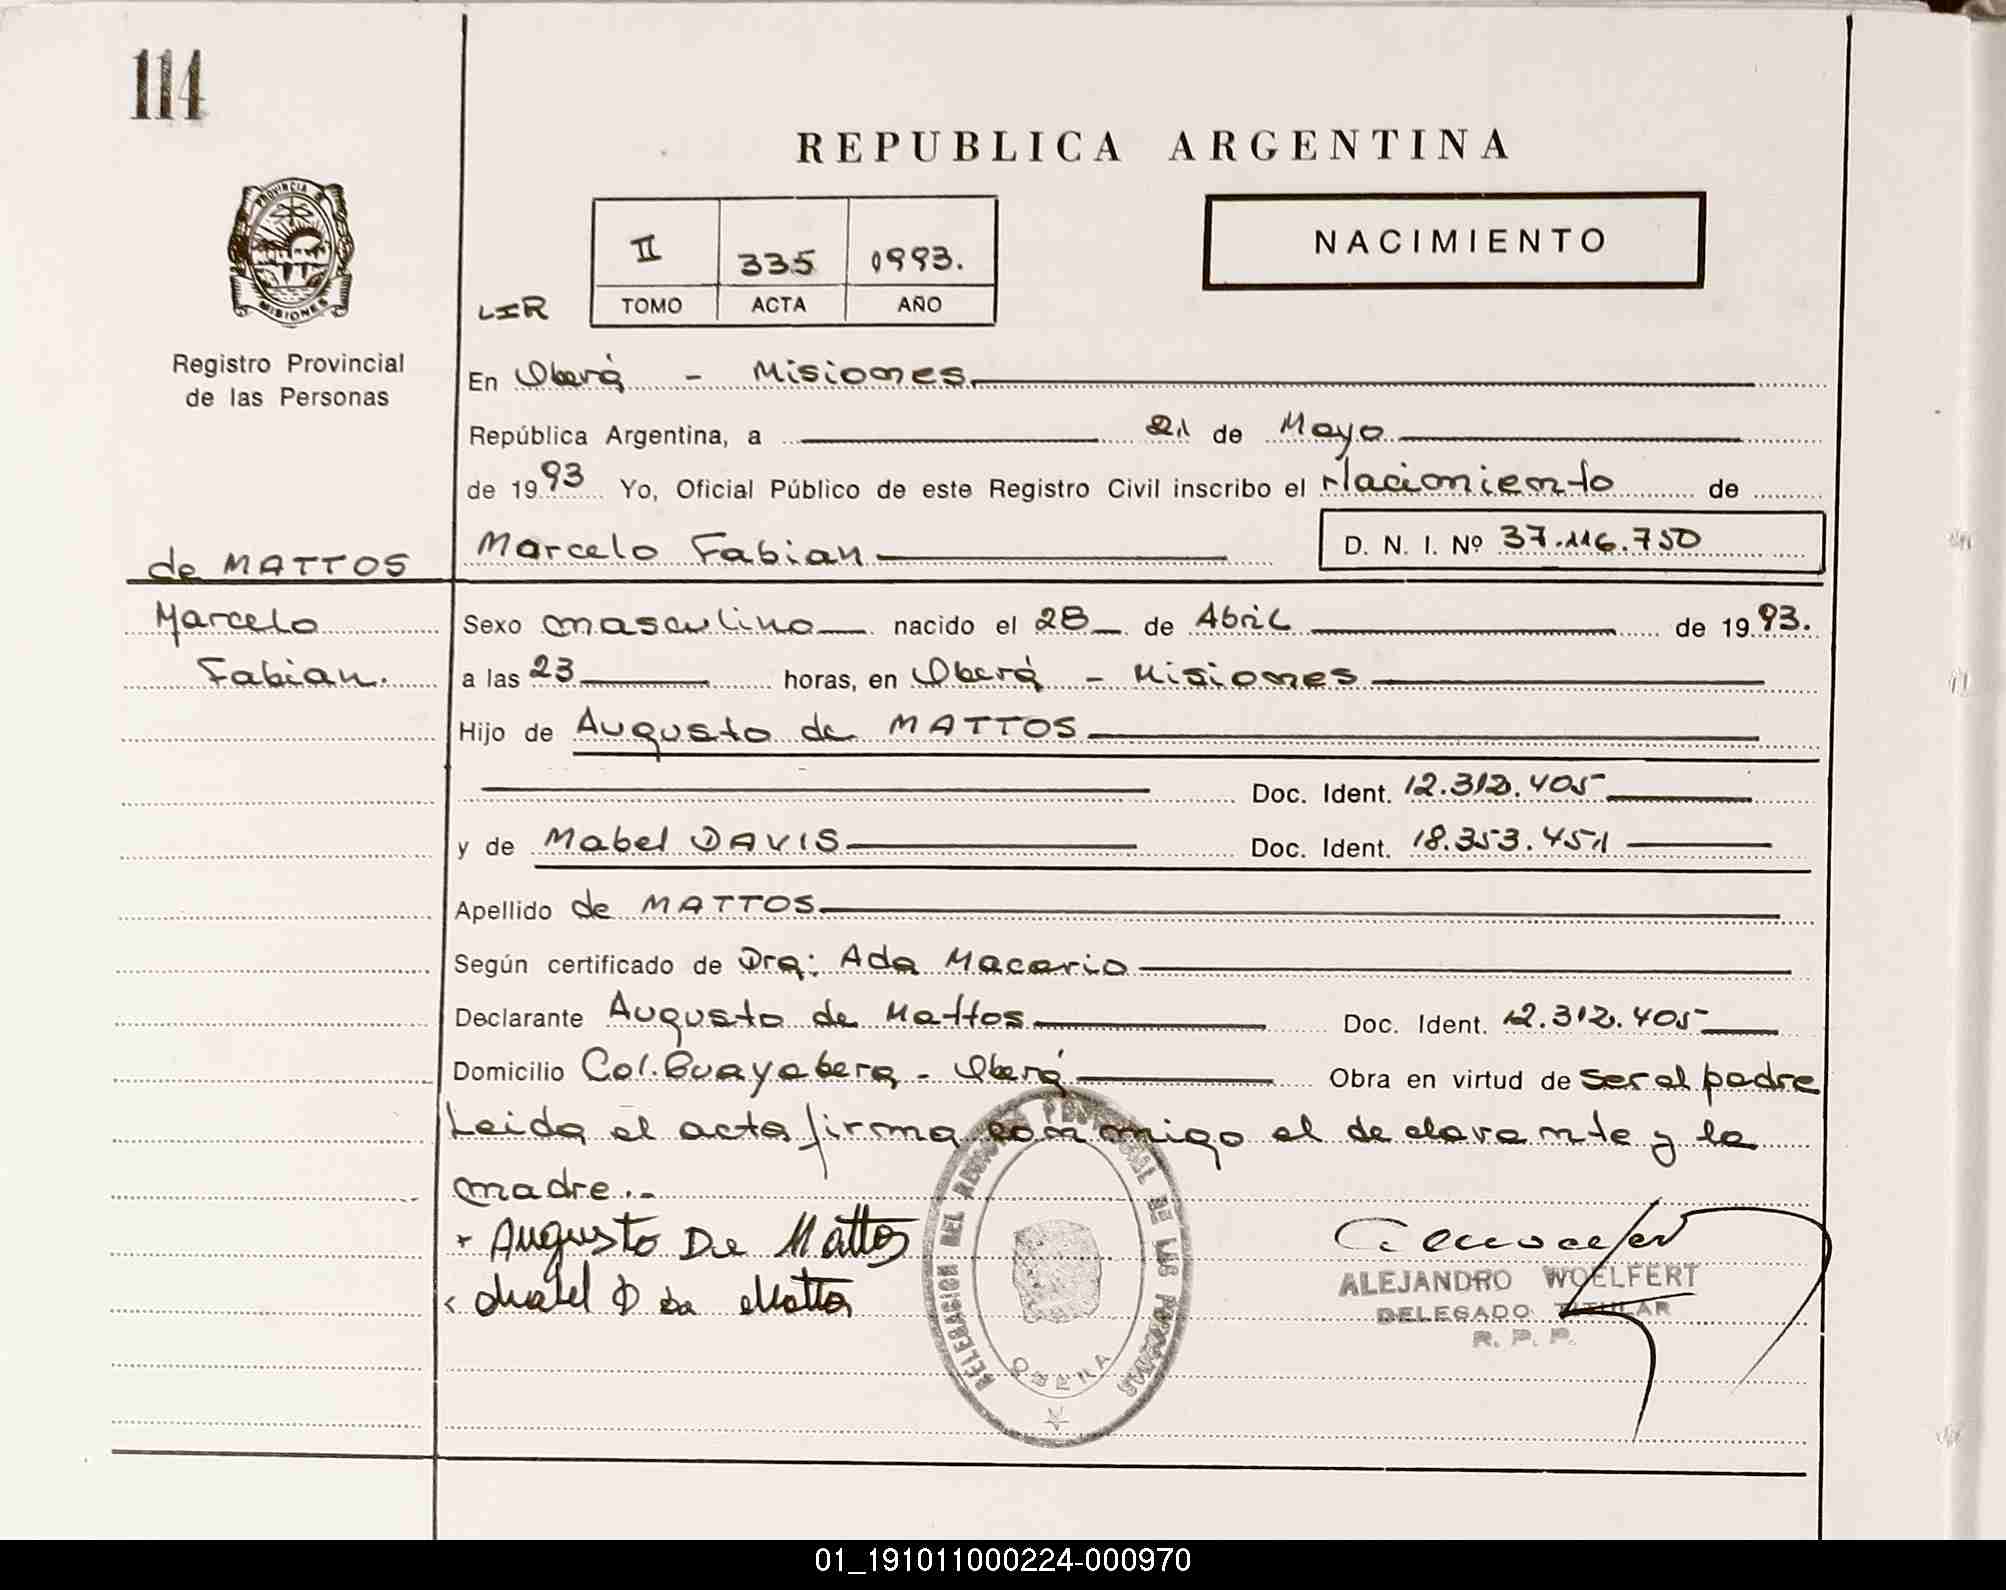 114
REPUBLICA ARGENTINA
PROVINCIA
MISIONES
II 335 1993.
TOMO ACTA AÑO
NACIMIENTO
LIR
Registro Provincial
de las Personas
En Oberá - Misiones
República Argentina, a 21 de Mayo
de 1993 Yo, Oficial Público de este Registro Civil inscribo el Nacimiento de
de MATTOS
Marcelo Fabian
D. N. I. Nº 37.116.750
Marcelo
Fabian.
Sexo masculino nacido el 28 de Abril de 1993.
a las 23 horas, en Oberá - Misiones
Hijo de Augusto de MATTOS
Doc. Ident. 12.312.405
y de Mabel DAVIS Doc. Ident. 18.353.451
Apellido de MATTOS
Según certificado de Dra: Ada Macario
Declarante Augusto de Mattos Doc. Ident. 12.312.405
Domicilio Col. Guayabera - Oberá Obra en virtud de ser el padre
Leida el acta firma conmigo el declarante y la
madre.-
Augusto De Mattos
Mabel D de Mattos
DELEGACION DEL REGISTRO PROVINCIAL DE LAS PERSONAS
OBERA
ALEJANDRO WOELFERT
DELEGADO TITULAR
R. P. P.
01_191011000224-000970